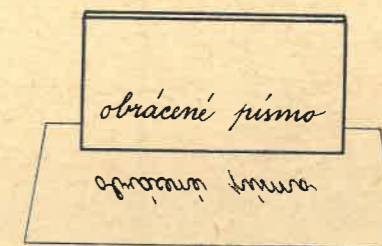 obrácené písmo
obrácené písmo